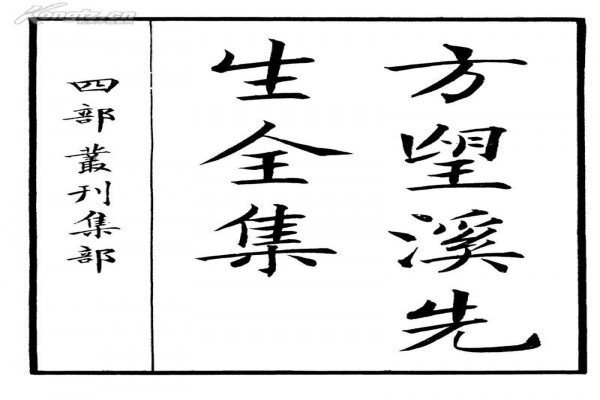 方望溪先
生全集
四部叢刊集部
Kongfz.cn